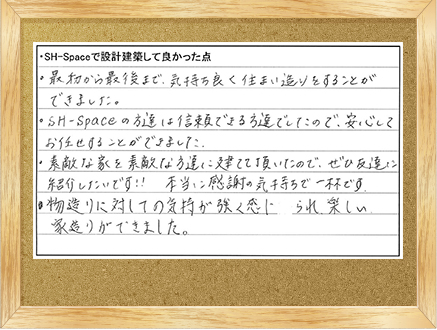 ・SH-Spaceで設計建築して良かった点
・最初から最後まで、気持ち良く住まい造りをすることが
できました。
・SH-Spaceの方達は信頼できる方達でしたので、安心して
お任せすることができました。
・素敵な家を素敵な方達に建てて頂いたので、ぜひ友達に
紹介したいです!! 本当に感謝の気持ちで一杯です。
・物造りに対しての気持が強く感じられ、楽しい
家造りができました。